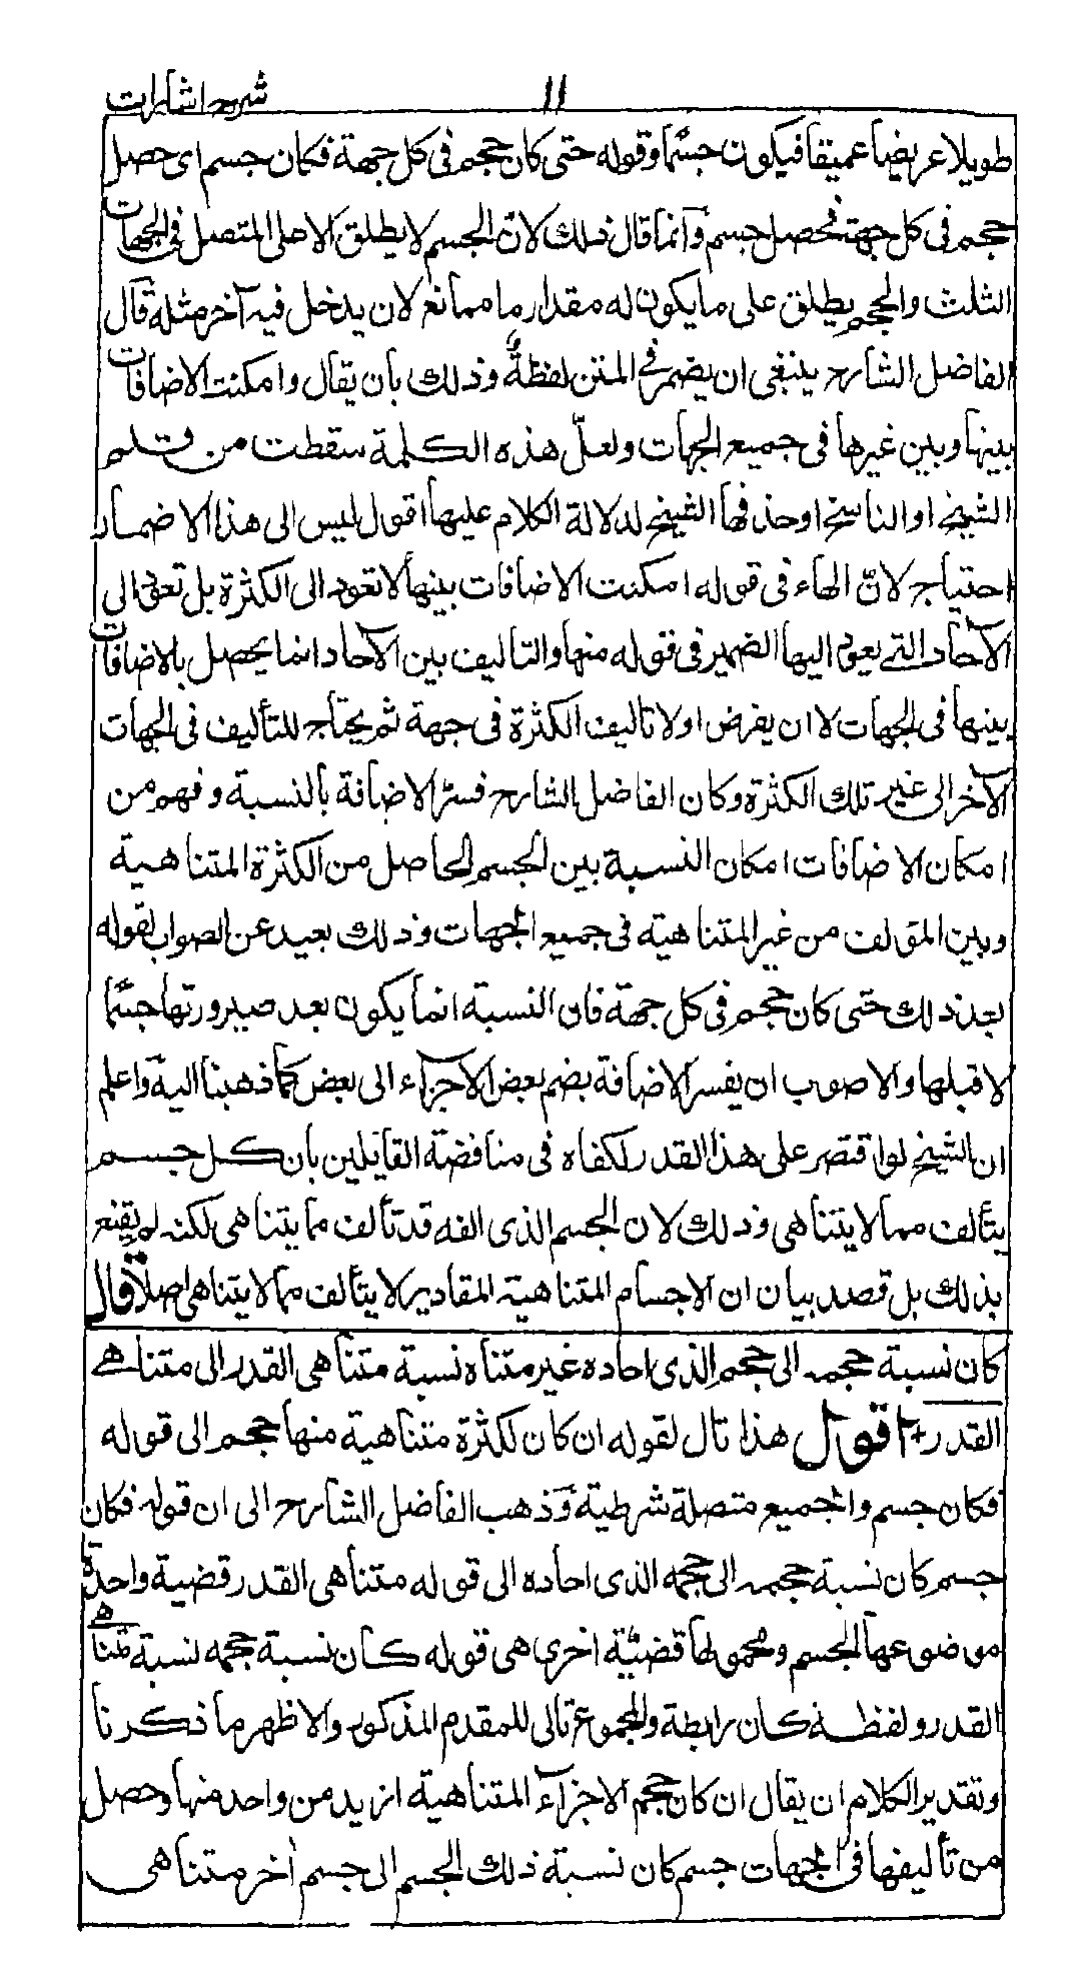 ١١ شرح اشارات
طويلا عريضا عميقا فيكون جسمًا وقوله حتى كان حجم فى كل جهة فكان جسم اى حصل
حجم فى كل جهة فحصل جسم وانما قال ذلك لانّ الجسم لا يطلق الا على المتصل فى الجهات
الثلث والحجم يطلق على ما يكون له مقدار ما ممانع لان يدخل فيه آخر مثله قال
الفاضل الشارح ينبغى ان يضمر فى المتن لفظةٌ وذلك بان يقال وامكنت الاضافات
بينها وبين غيرها فى جميع الجهات ولعلّ هذه الكلمة سقطت من قلم
الشيخ او الناسخ او حذفها الشيخ لدلالة الكلام عليها اقول ليس الى هذا الاضمار
احتياج لانّ الهاء فى قوله امكنت الاضافات بينها لا تعود الى الكثرة بل تعود الى
الآحاد التى يعود اليها الضمير فى قوله منها والتاليف بين الآحاد انما يحصل بالاضافات
بينها فى الجهات لا ان يفرض اولا تاليف الكثرة فى جهة ثم يحتاج للتأليف فى الجهات
الآخر الى غير تلك الكثرة وكان الفاضل الشارح فسّر الاضافة بالنسبة وفهم من
امكان الاضافات امكان النسبة بين الجسم الحاصل من الكثرة المتناهية
وبين المؤلف من غير المتناهية فى جميع الجهات وذلك بعيد عن الصواب لقوله
بعد ذلك حتى كان حجم فى كل جهة فان النسبة انما يكون بعد صيرورتها جسمًا
لا قبلها والاصوب ان يفسر الاضافة بضم بعض الاجزآء الى بعض كما ذهبنا اليه واعلم
ان الشيخ لو اقتصر على هذا القدر لكفاه فى مناقضة القايلين بان كل جسم
يتألف مما لا يتناهى وذلك لان الجسم الذى الفه قد تألف مما يتناهى لكنه لم يقنع
بذلك بل قصد بيان ان الاجسام المتناهية المقادير لا يتألف مما لا يتناهى اصلا قال
كان نسبة حجمه الى حجم الذى احاده غير متناه نسبة متناهى القدر الى متناهى
القدر+ اقول هذا تال لقوله ان كان لكثرة متناهية منها حجم الى قوله
فكان جسم والجميع متصلة شرطية وذهب الفاضل الشارح الى ان قوله فكان
جسم كان نسبة حجمه الى حجمه الذى احاده الى قوله متناهى القدر قضية واحدة
موضوعها الجسم ومحمولها قضيّة اخرى هى قوله كان نسبة حجمه نسبة متناهى
القدر ولفظة كان رابطة والمجموع تالى للمقدم المذكور والاظهر ما ذكرنا
وتقدير الكلام ان يقال ان كان حجم الاجزآء المتناهية ازيد من واحد منها وحصل
من تأليفها فى الجهات جسم كان نسبة ذلك الجسم الى جسم اخر متناهى